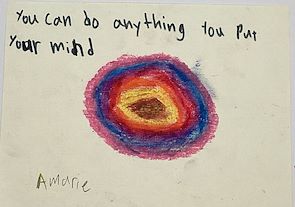 You can do anything you put
your mind
Amarie